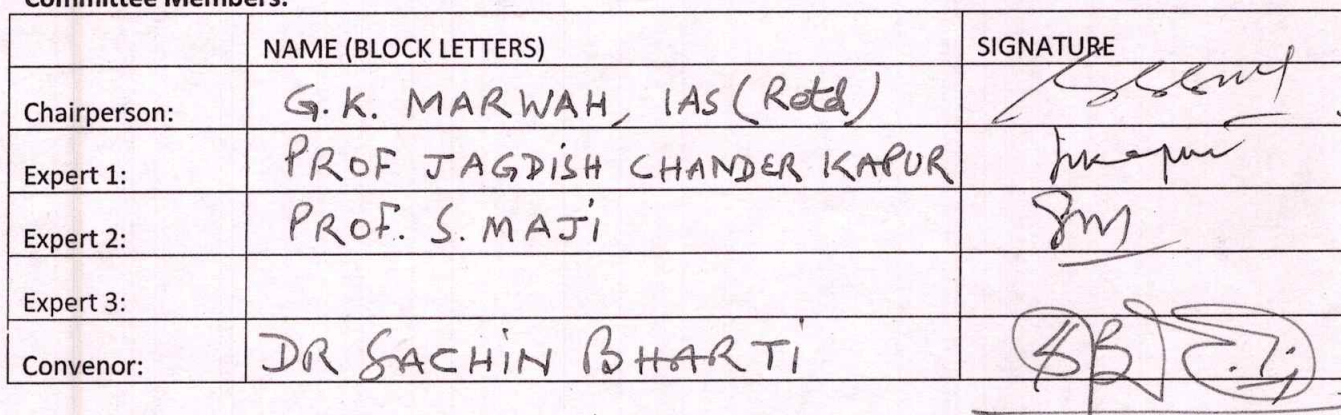 Committee Members:
NAME (BLOCK LETTERS) SIGNATURE
Chairperson: G. K. MARWAH, IAS (Retd)
Expert 1: PROF JAGDISH CHANDER KAPUR
Expert 2: PROF. S. MAJI
Expert 3:
Convenor: DR SACHIN BHARTI